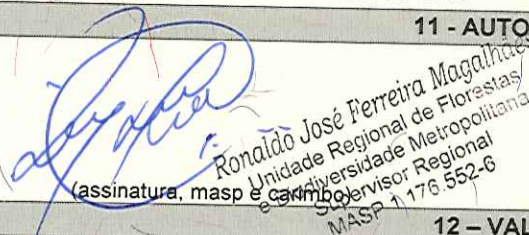 11 - AUTO
Ronaldo José Ferreira Magalhães
Unidade Regional de Florestas
e Biodiversidade Metropolitana
Supervisor Regional
MASP 1 176.552-6
(assinatura, masp e carimbo)
12 – VAL